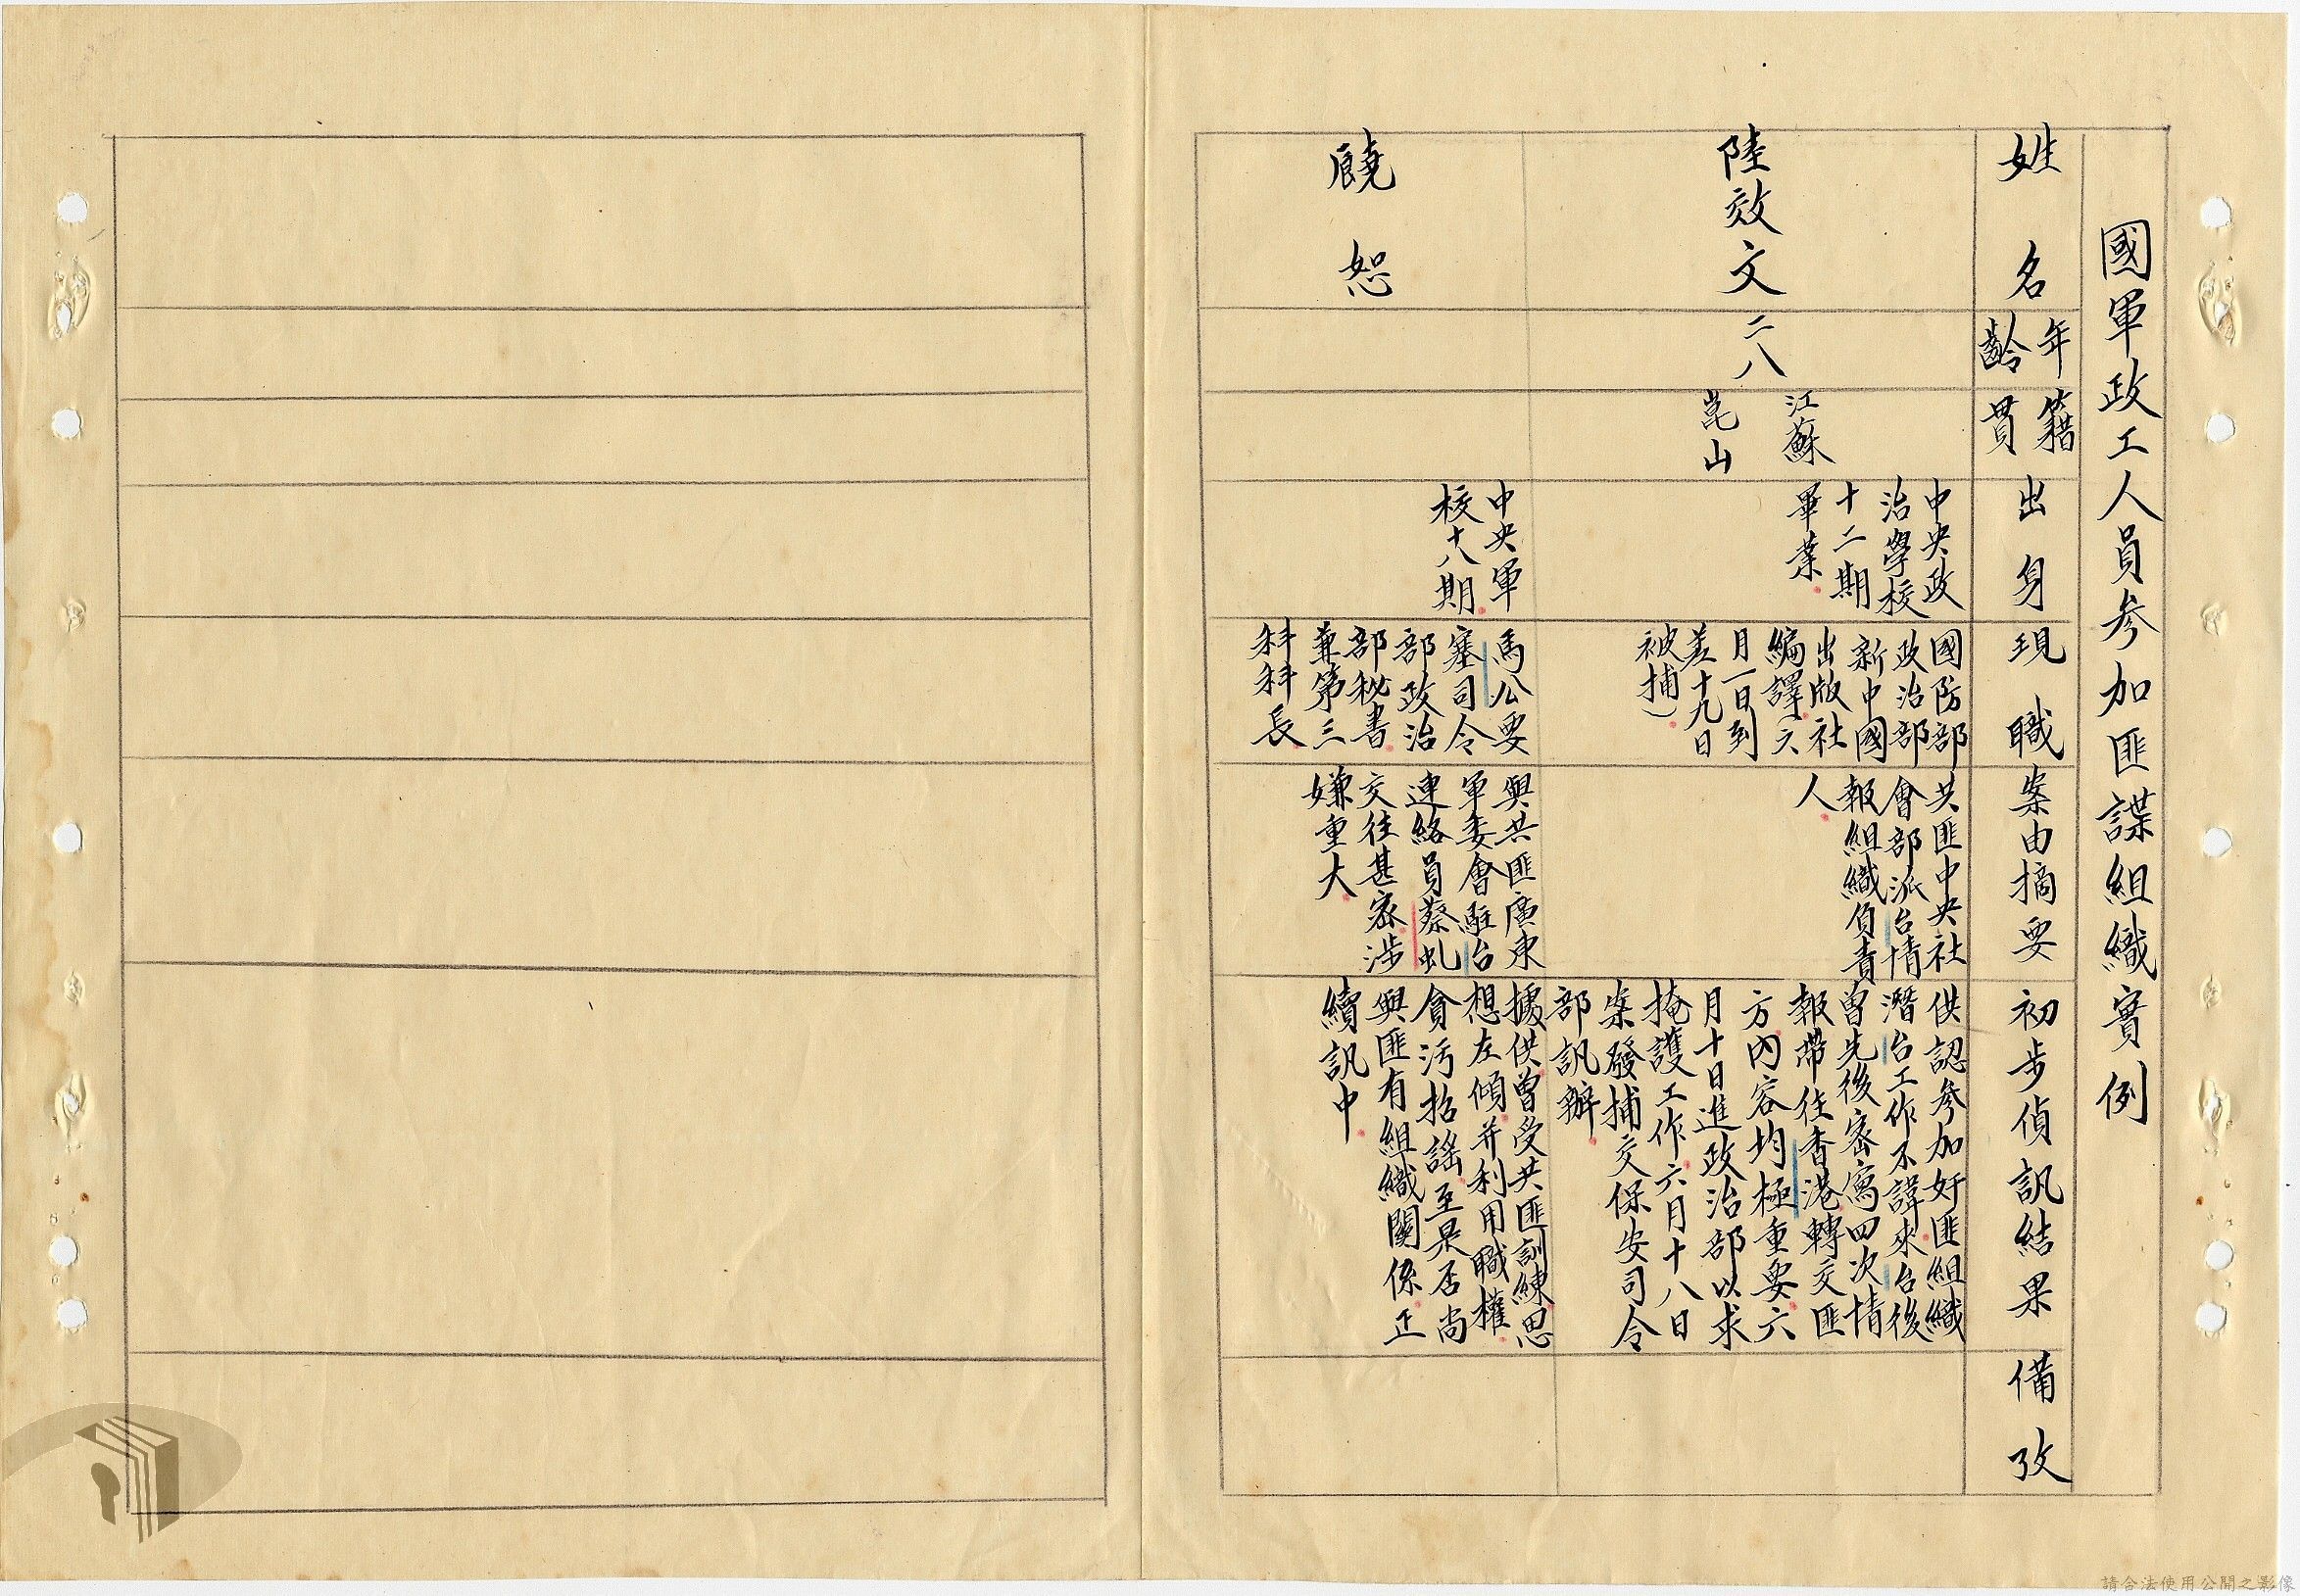 國軍政工人員參加匪諜組織實例
姓名
年齡
籍貫
出身
現職
案由摘要
初步偵訊結果
備攷
陸效文
二八
江蘇
崑山
中央政
治學校
十二期
畢業
國防部
政治部
新中國
出版社
編譯六
月一日到
差十九日
被捕）
共匪中央社
會部派台情
報組織負責
人
供認參加奸匪組織
潛台工作不諱來台後
曾先後密寫四次情
報帶往香港轉交匪
方內容均極重要六
月十日進政治部以求
掩護工作六月十八日
案發捕交保安司令
部訊辦
饒恕
中央軍
校十八期
馬公要
塞司令
部政治
部秘書
兼第三
科科長
與共匪廣東
軍委會駐台
連絡員蔡虬
交往甚密涉
嫌重大
據供曾受共匪訓練思
想左傾并利用職權
貪污招謠至是否尚
與匪有組織關係正
續訊中
請合法使用公開之影像